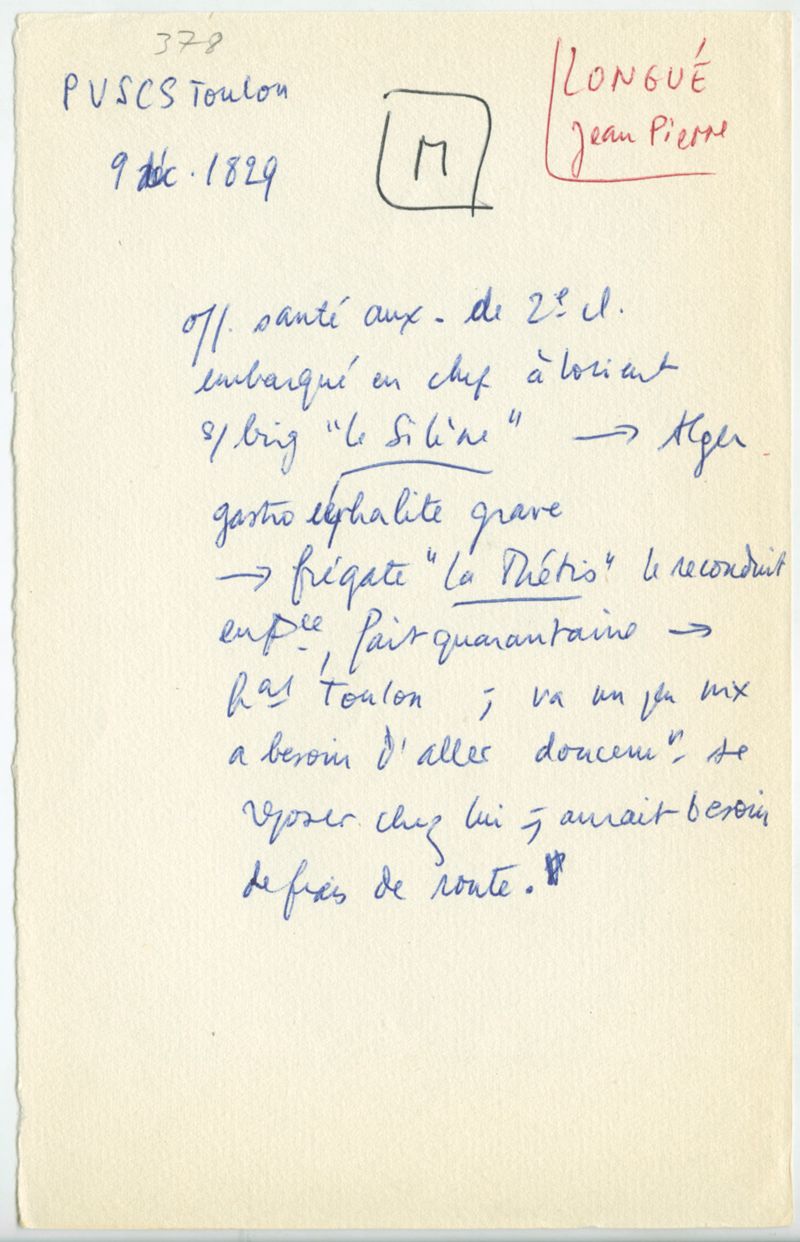 378
PVSCS Toulon
9 déc. 1829
M
LONGUÉ
Jean Pierre
off. santé aux. de 2e cl.
embarqué en chef à Lorient
s/ brig "le Silène" → Alger
gastro céphalite grave
→ frégate "La Thétis" le reconduit
en Fce, fait quarantaine →
hal Toulon ; va un peu mx
a besoin d'aller doucemt se
reposer chez lui ; aurait besoin
de frais de route.